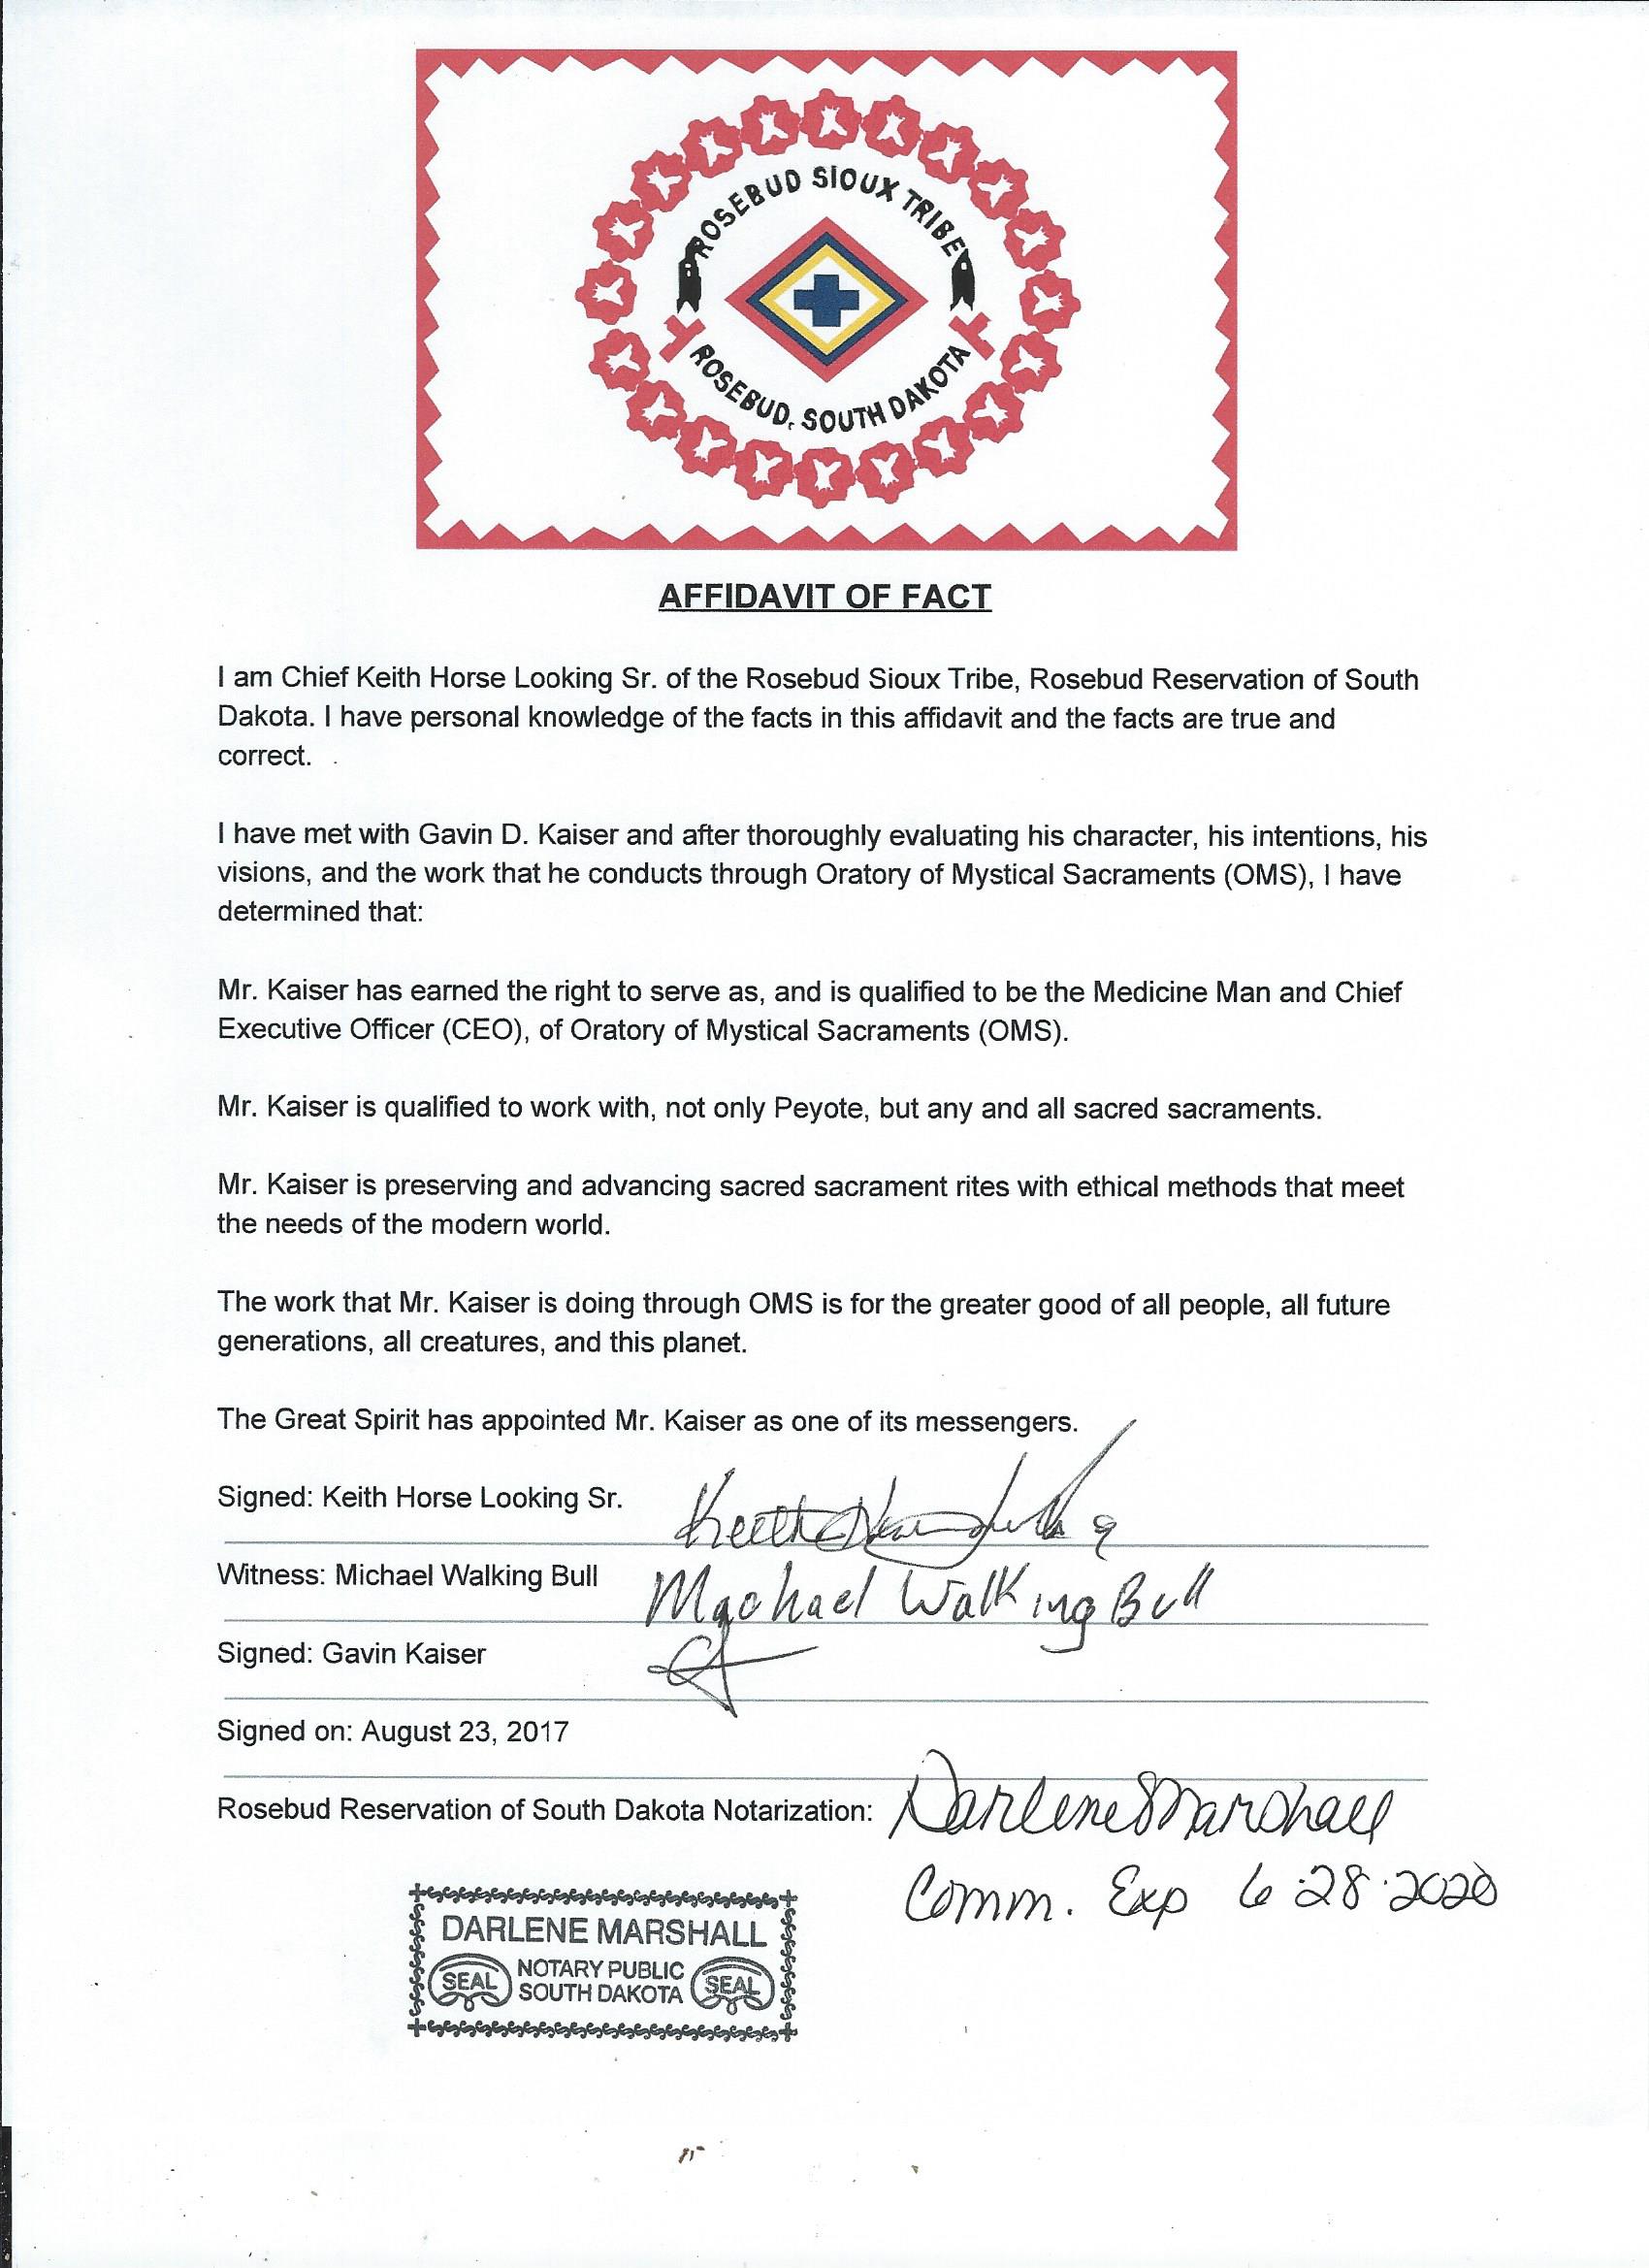 ROSEBUD SIOUX TRIBE
ROSEBUD, SOUTH DAKOTA
AFFIDAVIT OF FACT
I am Chief Keith Horse Looking Sr. of the Rosebud Sioux Tribe, Rosebud Reservation of South
Dakota. I have personal knowledge of the facts in this affidavit and the facts are true and
correct.
I have met with Gavin D. Kaiser and after thoroughly evaluating his character, his intentions, his
visions, and the work that he conducts through Oratory of Mystical Sacraments (OMS), I have
determined that:
Mr. Kaiser has earned the right to serve as, and is qualified to be the Medicine Man and Chief
Executive Officer (CEO), of Oratory of Mystical Sacraments (OMS).
Mr. Kaiser is qualified to work with, not only Peyote, but any and all sacred sacraments.
Mr. Kaiser is preserving and advancing sacred sacrament rites with ethical methods that meet
the needs of the modern world.
The work that Mr. Kaiser is doing through OMS is for the greater good of all people, all future
generations, all creatures, and this planet.
The Great Spirit has appointed Mr. Kaiser as one of its messengers.
Signed: Keith Horse Looking Sr. Keith
Witness: Michael Walking Bull Machael Walking Bull
Signed: Gavin Kaiser
Signed on: August 23, 2017
Rosebud Reservation of South Dakota Notarization: Darlene Marshall
Comm. Exp 6-28-2020
DARLENE MARSHALL
SEAL NOTARY PUBLIC SEAL
SOUTH DAKOTA